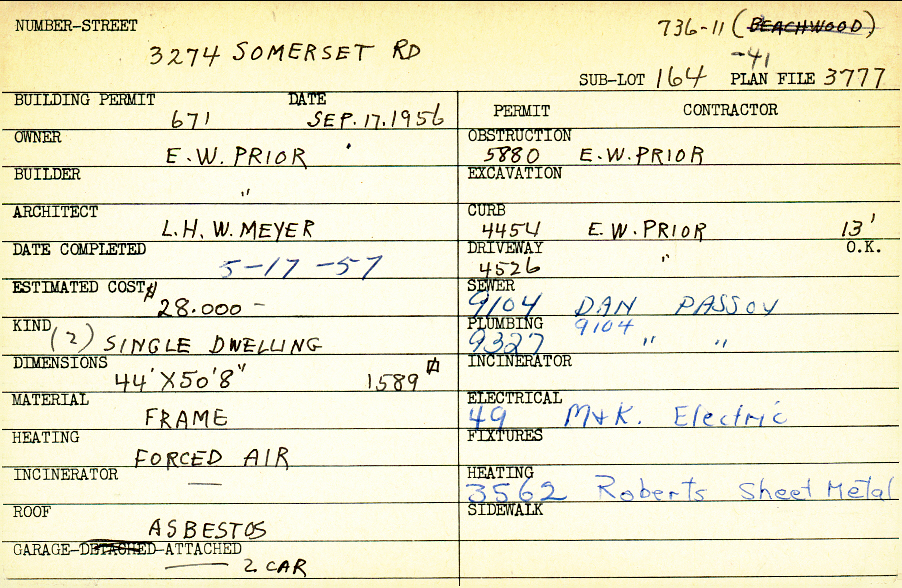 NUMBER-STREET 736-11 (BEACHWOOD)
3274 SOMERSET RD -41
SUB-LOT 164 PLAN FILE 3777
BUILDING PERMIT DATE
671 SEP. 17. 1956
OWNER
E. W. PRIOR
BUILDER
"
ARCHITECT
L. H. W. MEYER
DATE COMPLETED
5-17-57
ESTIMATED COST $
28.000 -
KIND
(2) SINGLE DWELLING
DIMENSIONS
44' X 50'8" 1589
MATERIAL
FRAME
HEATING
FORCED AIR
INCINERATOR
—
ROOF
ASBESTOS
GARAGE-DETACHED-ATTACHED
— 2 CAR
PERMIT CONTRACTOR
OBSTRUCTION
5880 E. W. PRIOR
EXCAVATION
CURB
4454 E. W. PRIOR 13'
DRIVEWAY O.K.
4526 "
SEWER
9104 DAN PASSOV
PLUMBING 9104
9327 " "
INCINERATOR
ELECTRICAL
49 M+K. Electric
FIXTURES
HEATING
3562 Roberts Sheet Metal
SIDEWALK